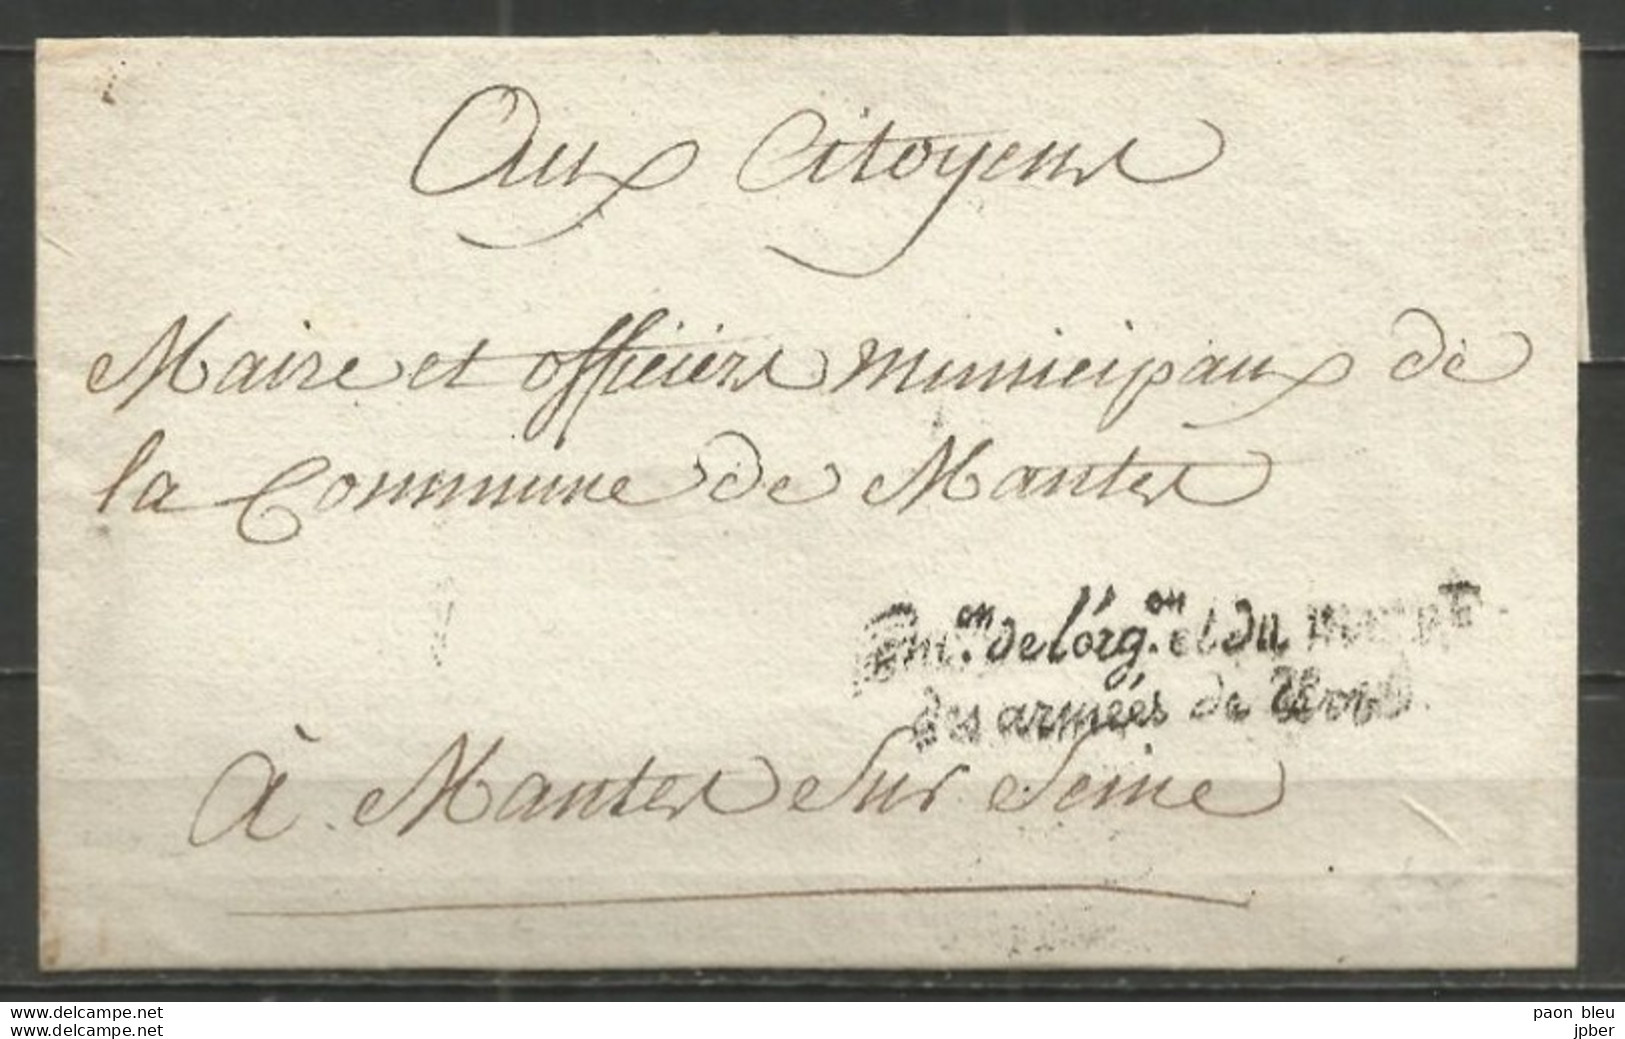 Aux Citoyens
Maire et officiers municipaux de
la Commune de Mantes
Com.on de l'org.on et du mouv.t
des armées de Terre
à Mantes sur Seine
www.delcampe.net
www.delcampe.net
paon bleu
jpber